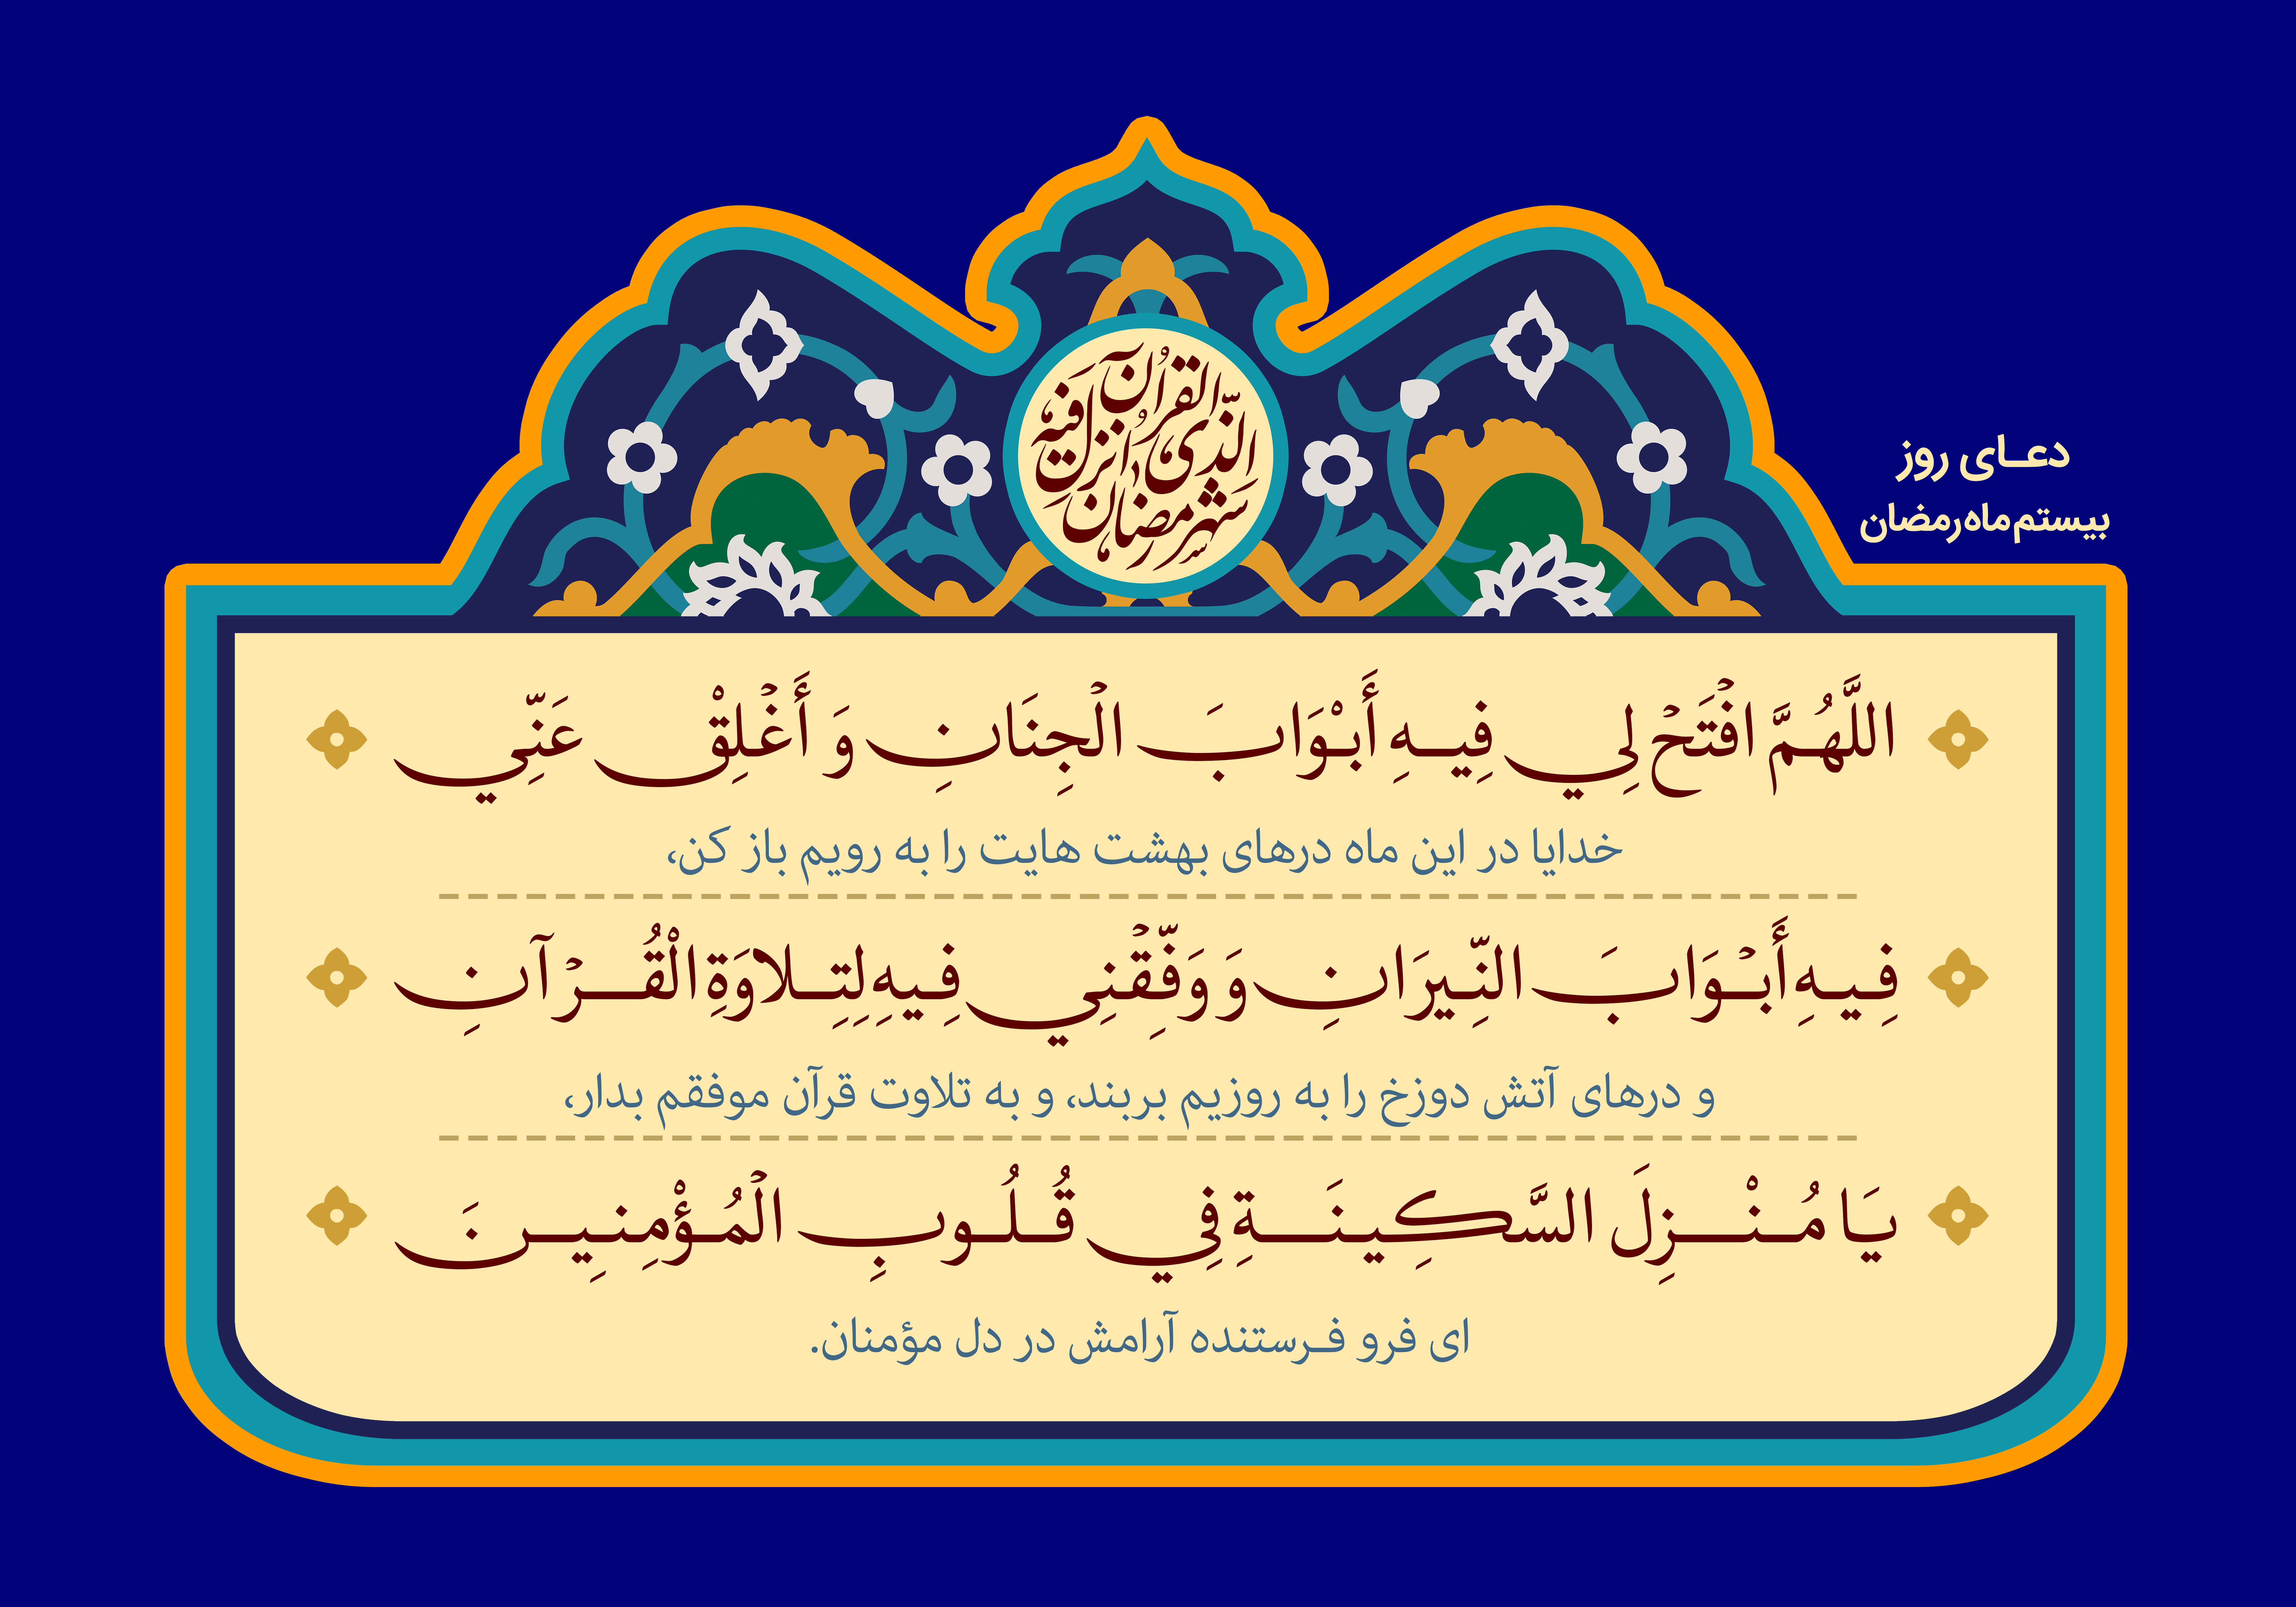 شهر رمضان الذی اُنزل فیه القراٰن
دعای روز
بیستم ماه رمضان
اللَّهُمَّ افْتَحْ لِي فِيهِ أَبْوَابَ الْجِنَانِ وَ أَغْلِقْ عَنِّي
خدایا در این ماه درهای بهشت هایت را به رویم باز کن،
فِيهِ أَبْوَابَ النِّيرَانِ وَ وَفِّقْنِي فِيهِ لِتِلاوَةِ الْقُرْآنِ
و درهای آتش دوزخ را به روزیم بربند، و به تلاوت قرآن موفقم بدار،
يَا مُنْزِلَ السَّكِينَةِ فِي قُلُوبِ الْمُؤْمِنِينَ
ای فرو فرستنده آرامش در دل مؤمنان.